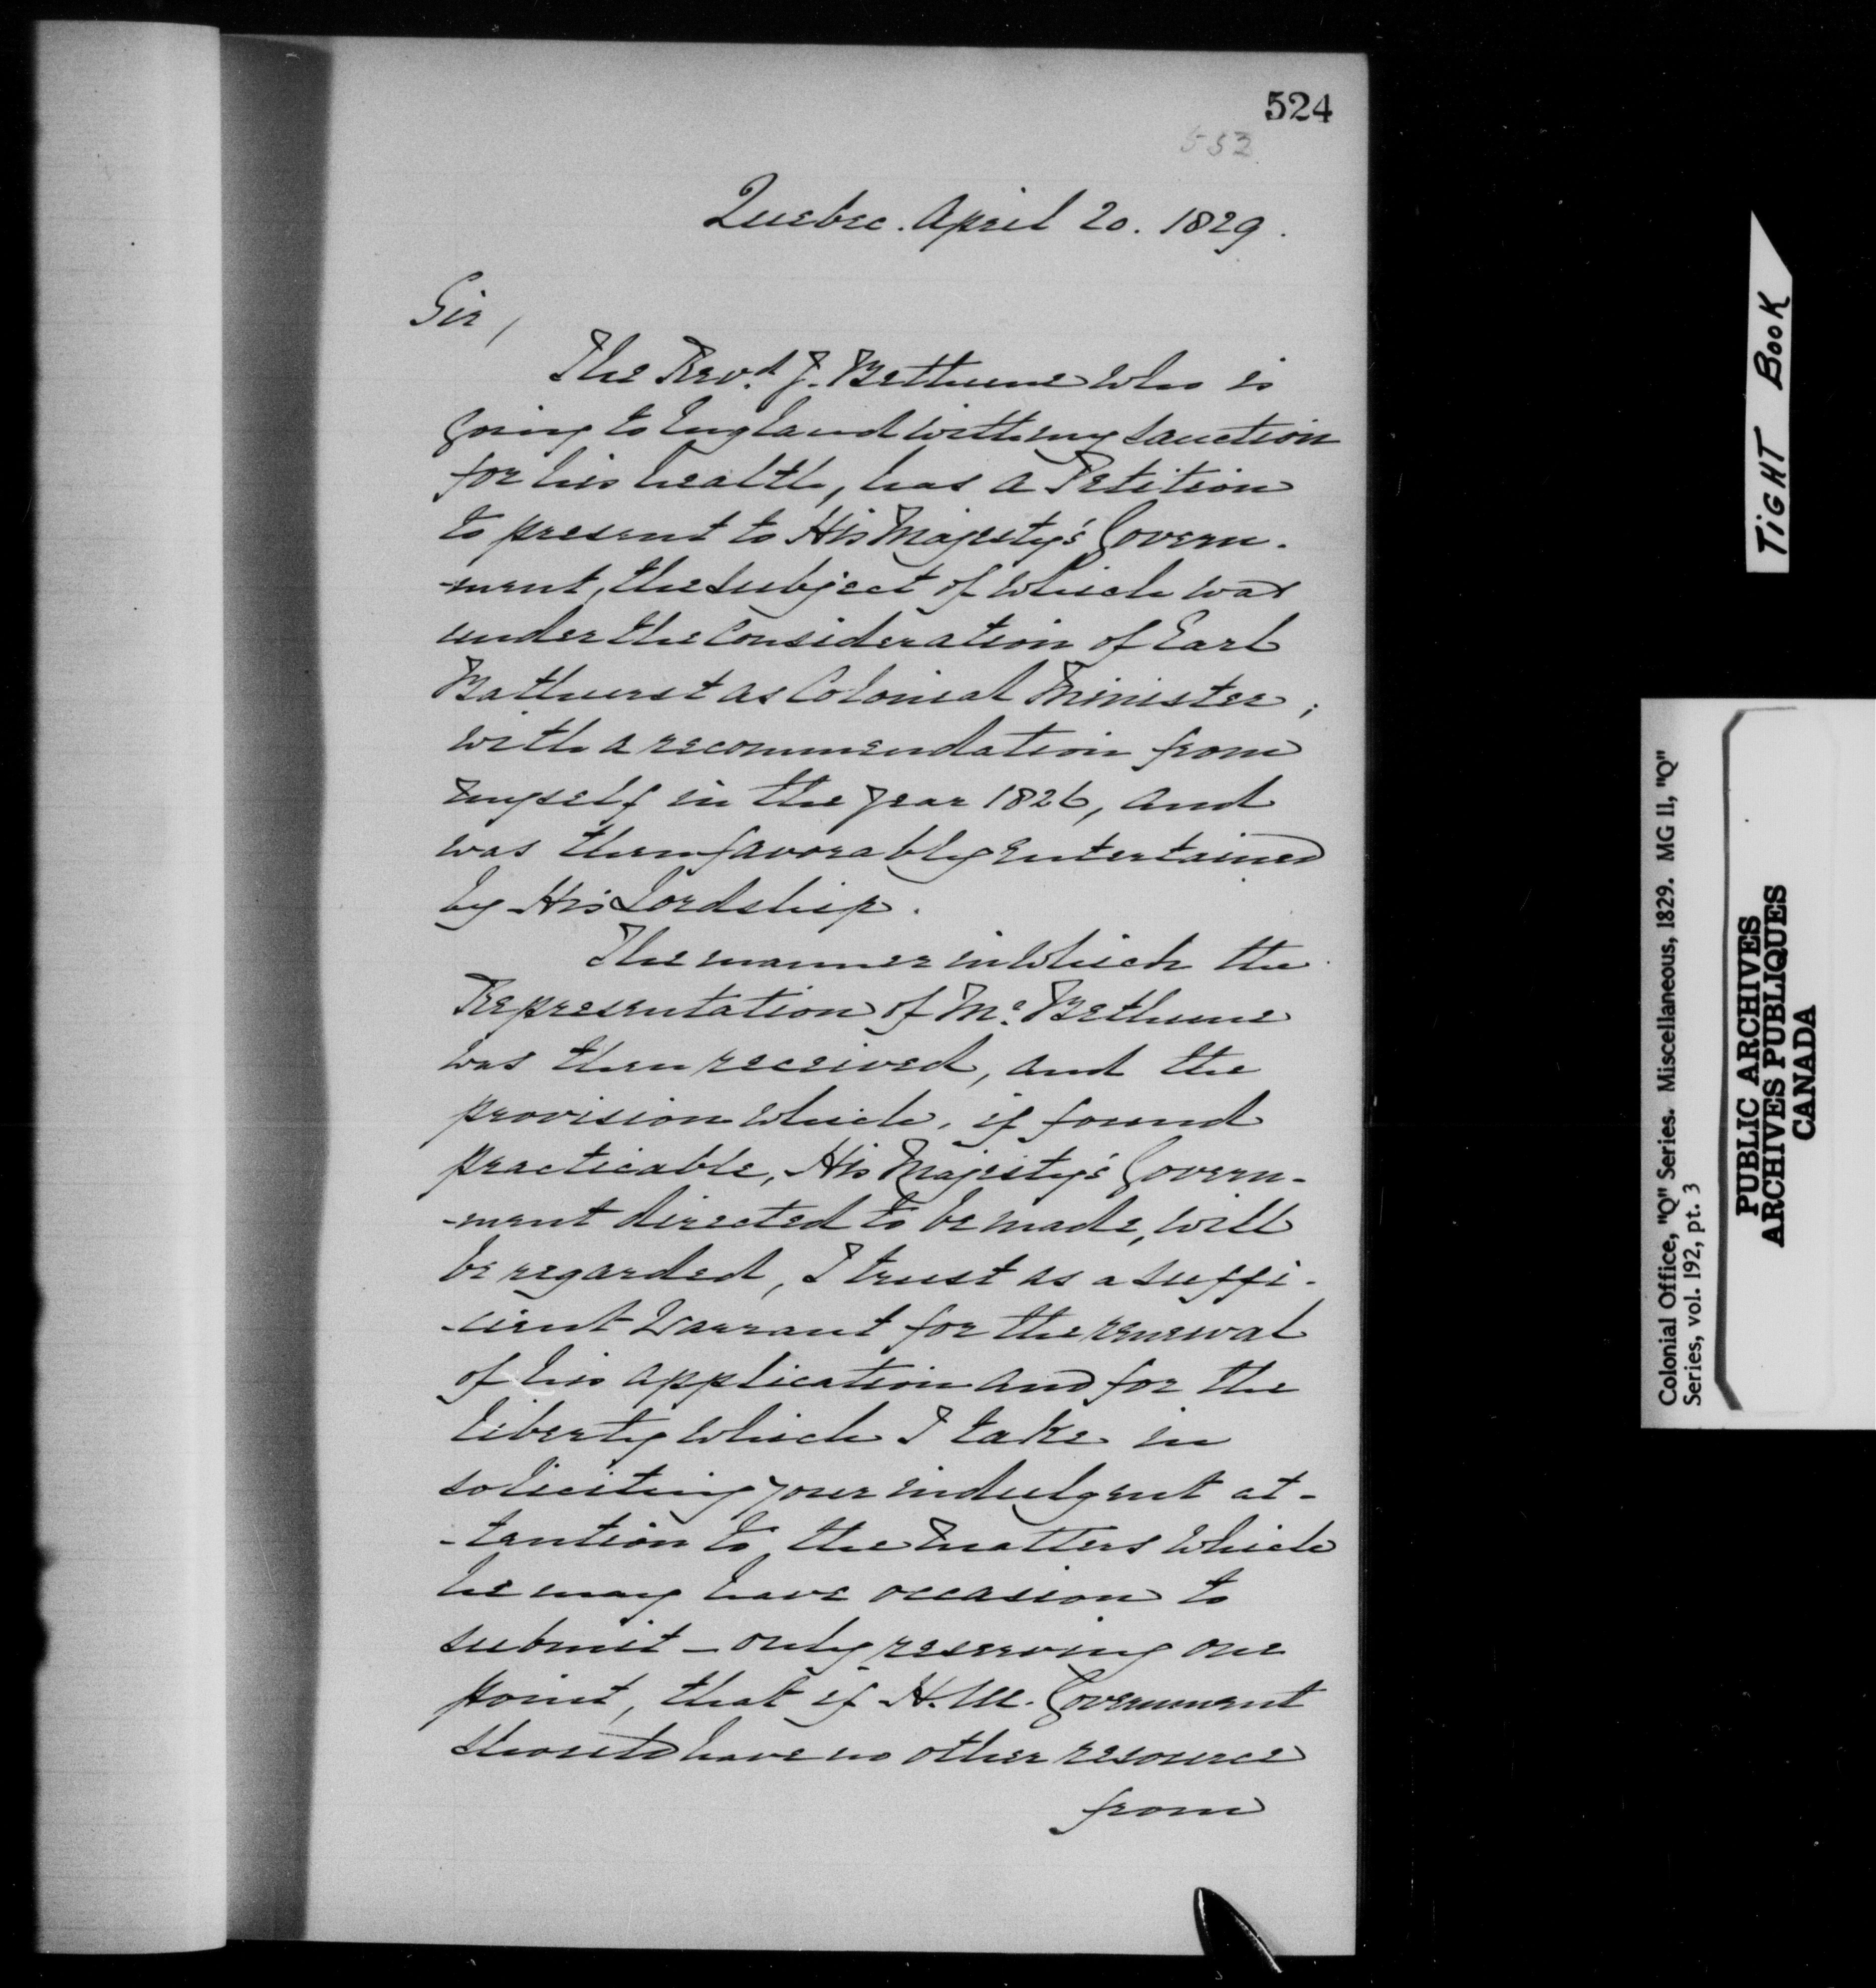 524
553
Quebec. April 20. 1829.
Sir,
The Revd. J. Bethune who is
going to England with my sanction
for his health, has a Petition
to present to His Majesty's Govern-
-ment, the subject of which was
under the Consideration of Earl
Bathurst as Colonial Minister;
with a recommendation from
myself in the year 1826, and
was then favorably entertained
by His Lordship.
The manner in which the
Representation of Mr. Bethune
was then received, and the
provision which, if found
practicable, His Majesty's Govern-
-ment directed to be made, will
be regarded, I trust as a suffi-
-cient Warrant for the renewal
of his application and for the
liberty which I take in
soliciting your indulgent at-
-tention to the matters which
he may have occasion to
submit - only reserving one
point, that if H.M. Government
should have no other resource
from
TIGHT BOOK
Colonial Office, "Q" Series. Miscellaneous, 1829. MG 11, "Q"
Series, vol. 192, pt. 3
PUBLIC ARCHIVES
ARCHIVES PUBLIQUES
CANADA